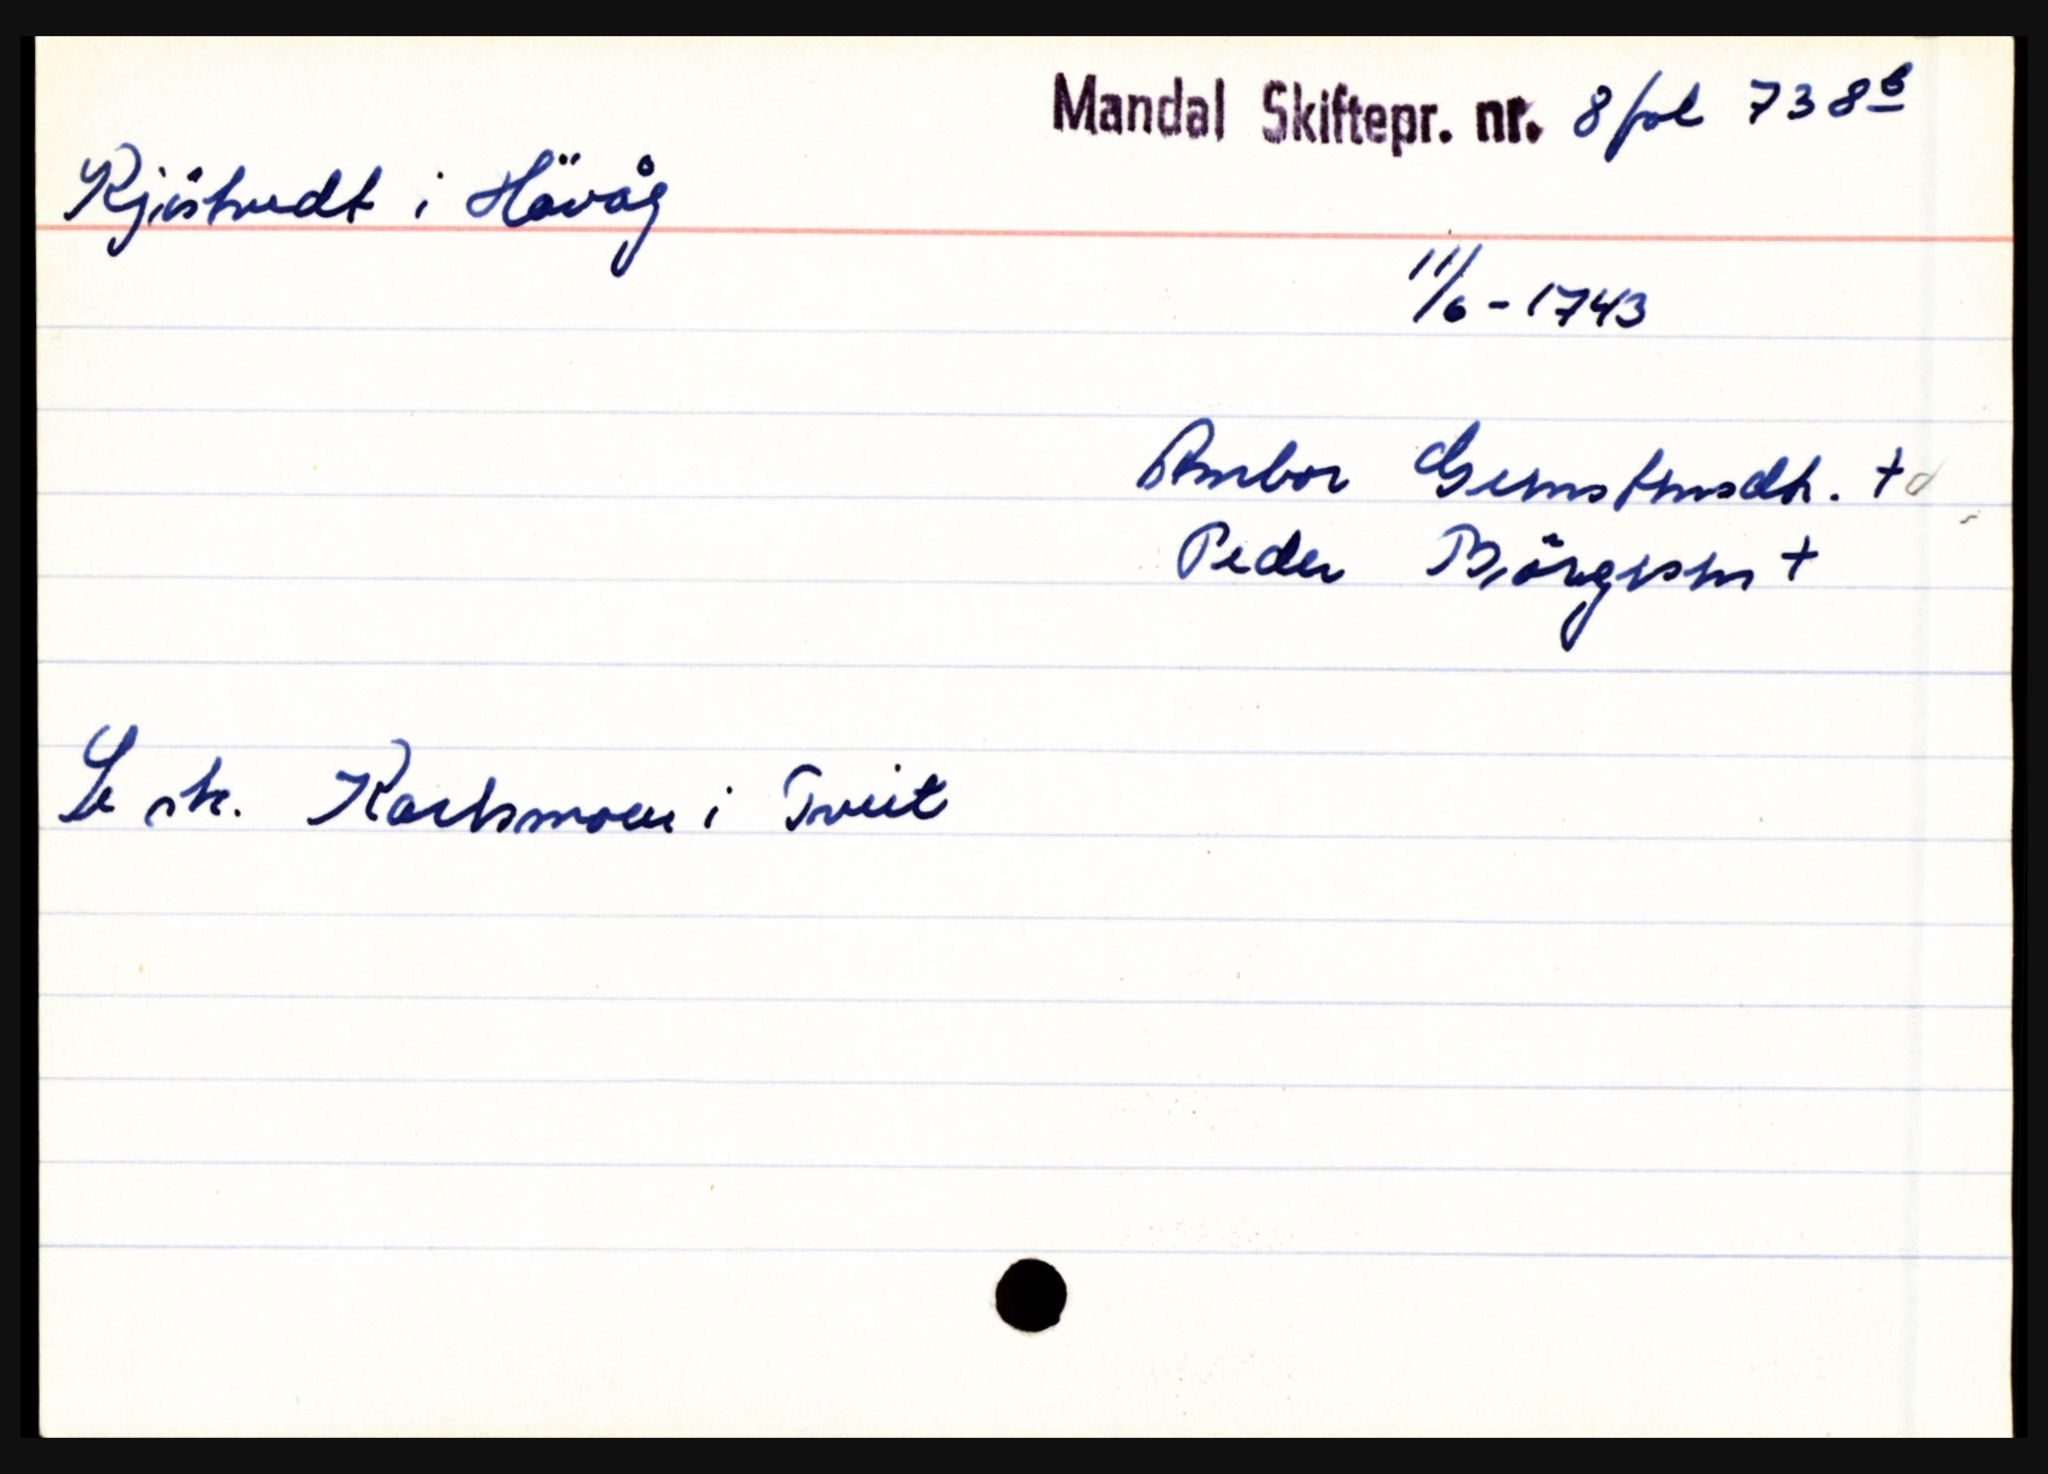 Mandal Skiftepr. nr. 8 fol 738 b
Kjöstvedt i Hövåg
11/6 - 1743
Anbor Gunstensdtr. +
Peder Björgesen +
Se sk. i Tveit